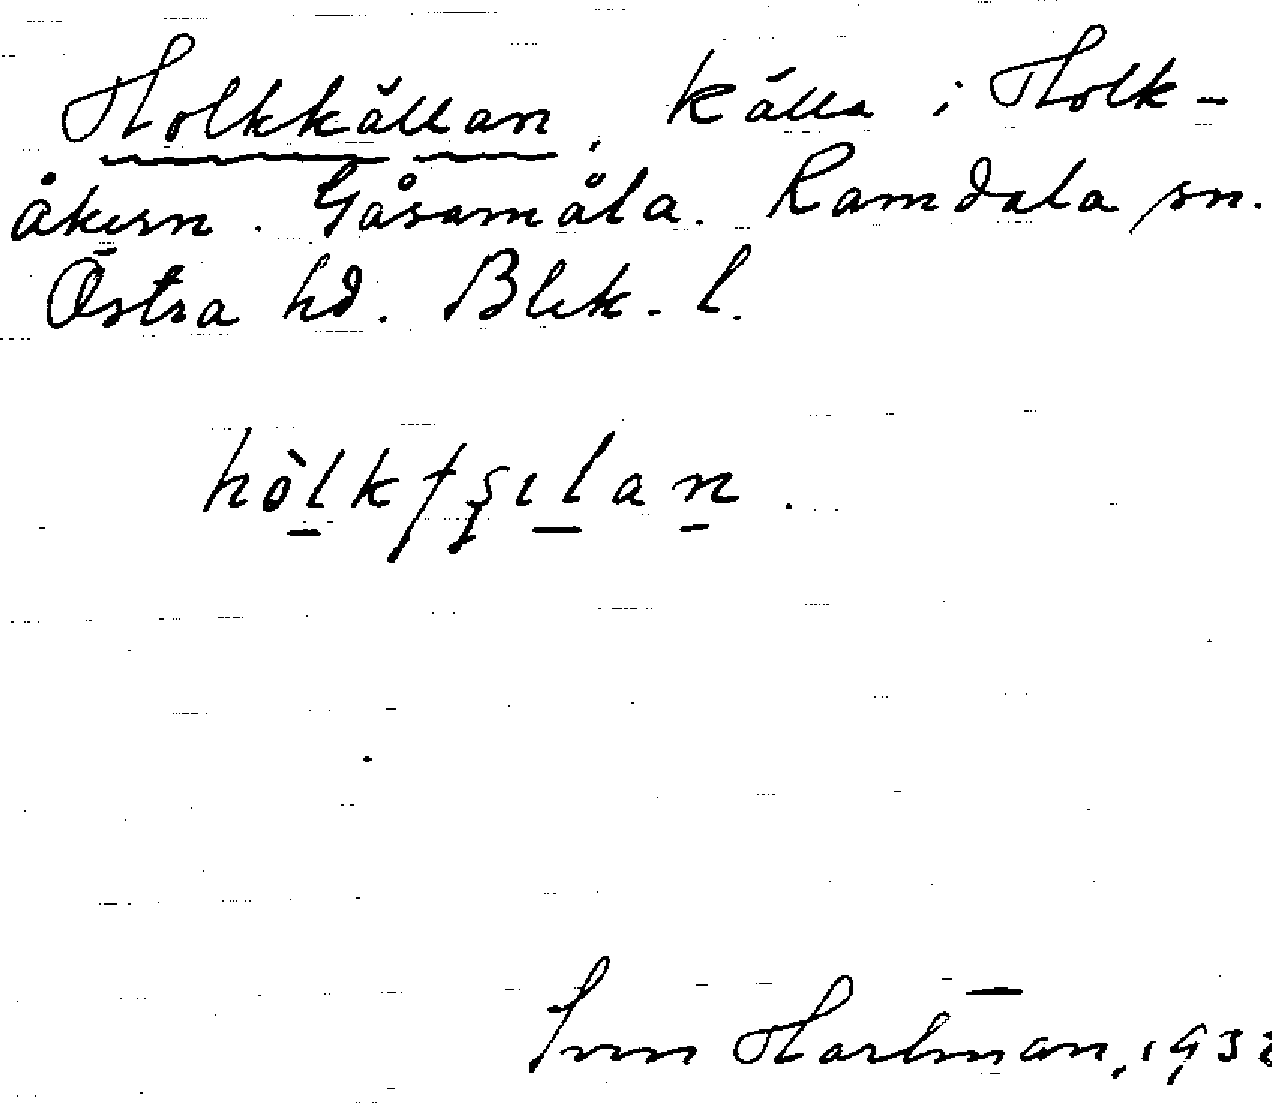 Holkkällan, källa i Holk-
åkern. Gåsamåla. Ramdala sn.
Östra hd. Blek. l.
Sven Hartman, 193